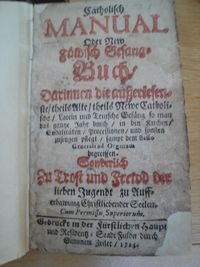 Catholisch
MANUAL
Oder New
Füldisch Gesang-
Buch/
Darinnen die außerlesen-
ste/ theils Alte/ theils Newe Catholi-
sche/ Latein und Teutsche Gesäng so man
das gantze Jahr durch/ in den Kirchen/
Processionen/ und sonsten
zusingen pflegt/ sampt dem
Generali ad Organum
begreiffen.
Sonderlich
Zu Trost und Frewd der
lieben Jugendt zu Auff-
erbawung Christliebender Seelen.
Cum Permissu Superiorum.
Gedruckt in der Fürstlichen Haupt
und Residentz-Stadt Fulda durch